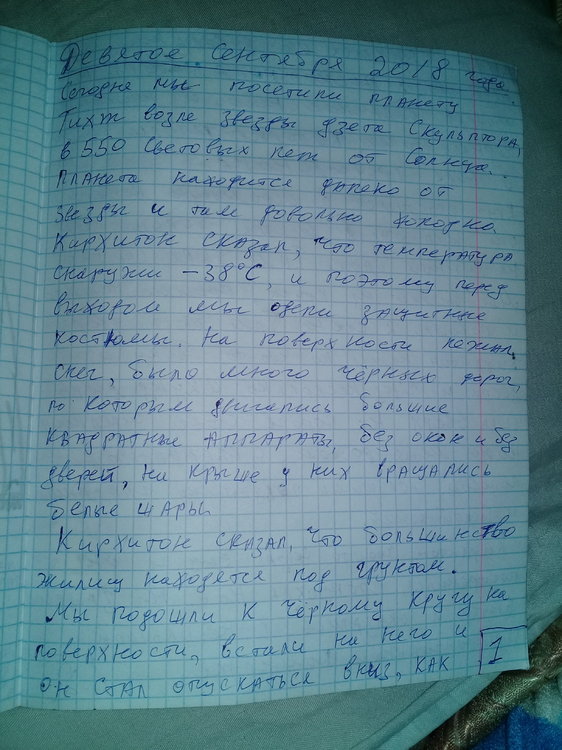 Девятое Сентября 2018 года.
Сегодня мы посетили планету
Тихт возле звезды дзета Скульптора,
в 550 световых лет от Солнца.
Планета находится далеко от
звезды и там довольно холодно.
Кирхитон сказал, что температура
снаружи -38°C, и поэтому перед
выходом мы одели защитные
костюмы. На поверхности лежал
снег, было много чёрных дорог,
по которым двигались большие
квадратные аппараты, без окон и без
дверей, на крыше у них вращались
белые шары.
Кирхитон сказал, что большинство
жилищ находятся под грунтом.
Мы подошли к чёрному кругу на
поверхности, встали на него и
он стал опускаться вниз, как
1